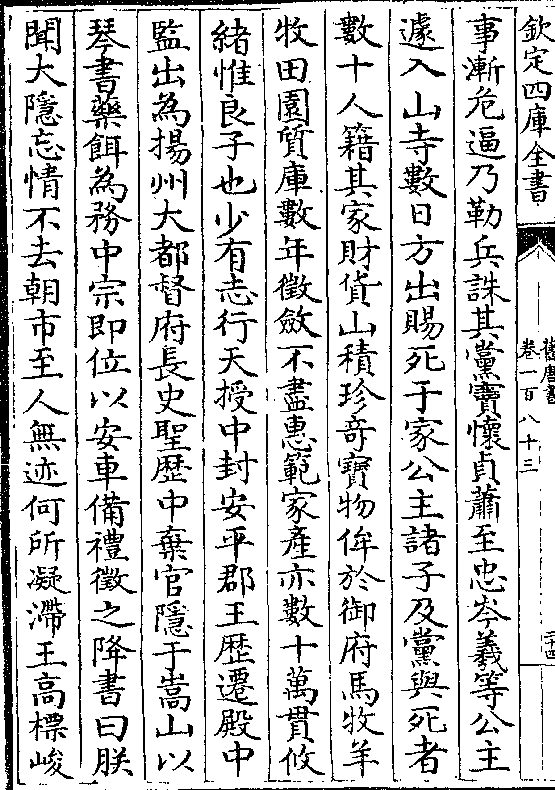 欽定四庫全書
舊唐書
卷一百八十三
二十四
事漸危逼乃勒兵誅其黨竇懷貞蕭至忠岑羲等公主
遽入山寺數日方出賜死于家公主諸子及黨與死者
數十人籍其家財貨山積珍奇寶物侔於御府馬牧羊
牧田園質庫數年徵斂不盡惠範家產亦數十萬貫攸
緒惟良子也少有志行天授中封安平郡王歴遷殿中
監出為揚州大都督府長史聖歴中棄官隱于嵩山以
琴書藥餌為務中宗即位以安車備禮徵之降書曰朕
聞大隱忘情不去朝市至人無迹何所凝滯王高標峻